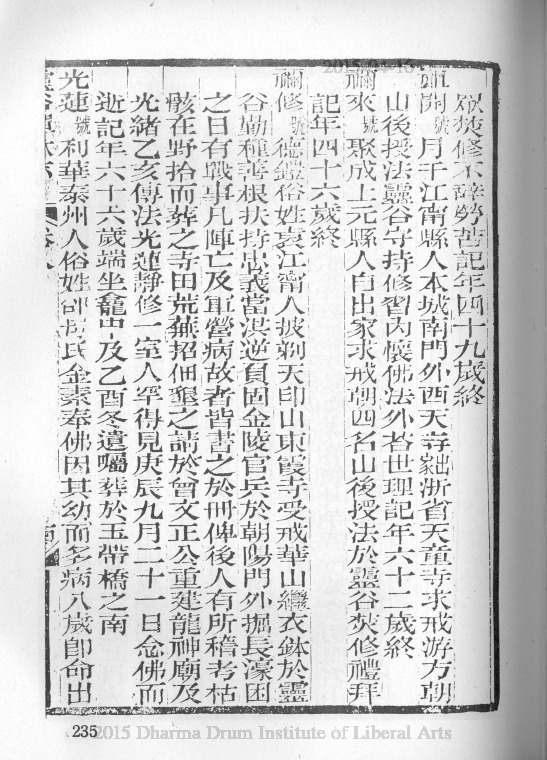 2015-04-16
焚修不辭勞苦記年四十九歲終
號月千江甯縣人本城南門外西天寺出浙省天童寺求戒游方朝
山後授法靈谷守持修習內懷佛法外咨世理記年六十二歲終
來號聚成上元縣人自出家求戒朝四名山後授法於靈谷焚修禮拜
記年四十六歲終
修號德鎧俗姓袁江甯人披剃天印山東霞寺受戒華山繼衣鉢於靈
谷勤種善根扶持忠義當洪逆負固金陵官兵於朝陽門外掘長濠困
之日有戰事凡陣亡及軍營病故者皆書之於冊俾後人有所稽考枯
骸在野拾而葬之寺田荒蕪招佃墾之請於曾文正公重建龍神廟及
光緒乙亥傳法光蓮靜修一室人罕得見庚辰九月二十一日念佛而
逝記年六十六歲端坐龕中及乙酉冬遺囑葬於玉帶橋之南
光蓮號利華泰州人俗姓氏金素奉佛因其幼而多病八歲卽命出
235
2015 Dharma Drum Institute of Liberal Arts